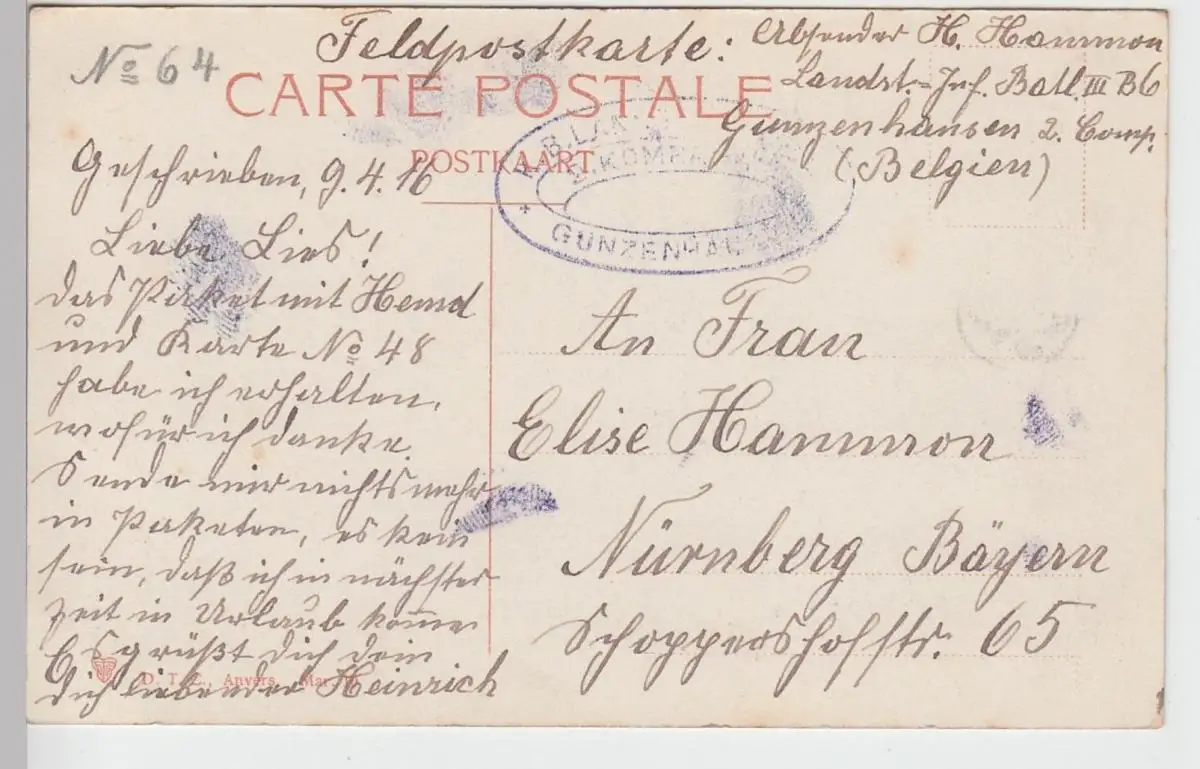 No 64
Feldpostkarte:
Absender H. Hammon
Landst.-Inf. Batl. III B6
Gunzenhausen 2. Comp.
(Belgien)
CARTE POSTALE
POSTKAART
2. KOMP
GUNZENHAU
Geschrieben, 9.4.16
Liebe Lies!
Das Paket mit Hemd
und Karte No 48
habe ich erhalten,
wofür ich danke.
Sende mir nichts mehr
in Paketen, es kein
sein, daß ich in nächster
Zeit in Urlaub komme
Es grüßt Dich dein
Dich liebender Heinrich
An Frau
Elise Hammon
Nürnberg Bayern
Schoppershofstr. 65
D. T. C., Anvers.